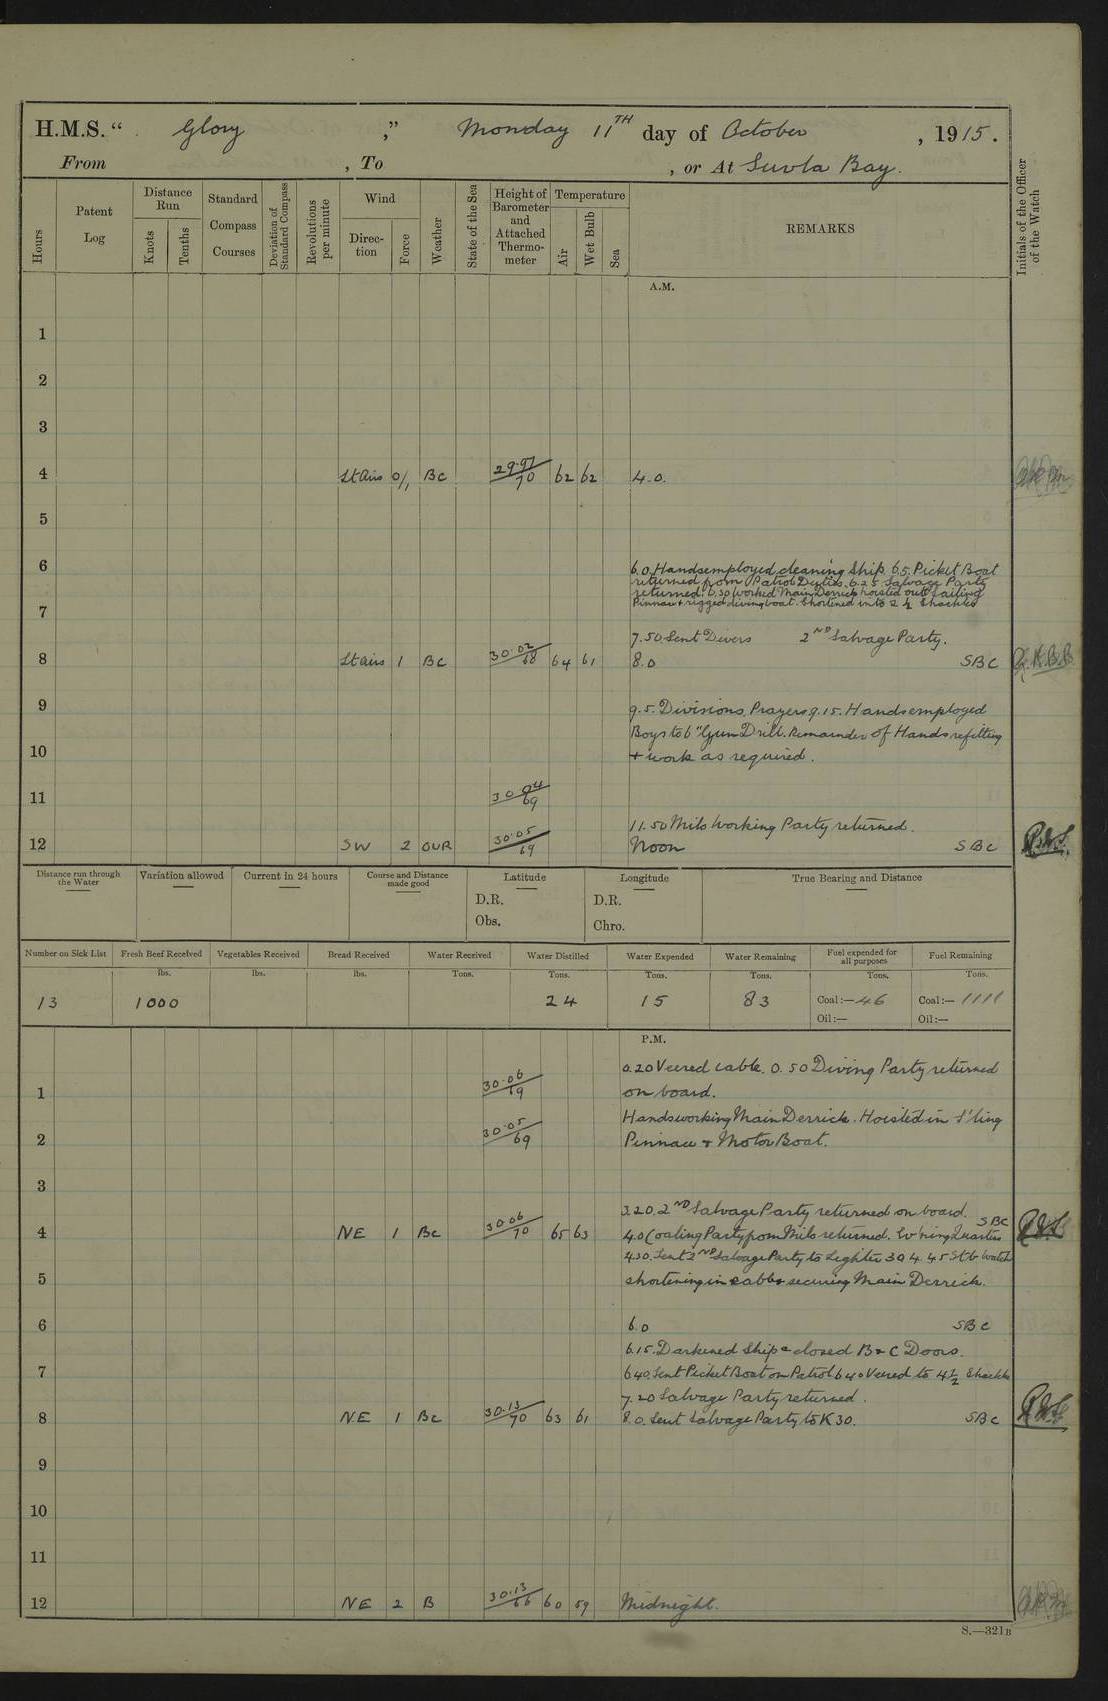 H.M.S. “ Glory ,” Monday 11TH day of October , 1915.
From , To , or At Suvla Bay.
Hours
Patent Log
Distance Run
Knots
Tenths
Standard Compass Courses
Deviation of Standard Compass
Revolutions per minute
Wind
Direction
Force
Weather
State of the Sea
Height of Barometer and Attached Thermometer
Temperature
Air
Wet Bulb
Sea
REMARKS
Initials of the Officer of the Watch
A.M.
1
2
3
4 Lt Airs 0/1 BC 29.97/70 62 62 4.0.
5
6 6.0. Hands employed cleaning Ship. 6.5. Picket Boat
returned from Patrol Duties. 6.25 Salvage Party
returned. 6.30 Worked Main Derrick hoisted out Sailing
7 Pinnace & rigged diving boat. Shortened in to 2 ½ Shackles
7.50 Sent Divers 2ND Salvage Party.
8 Lt Airs 1 BC 30.02/68 64 61 8.0 SBC
9 9.5. Divisions, Prayers 9.15. Hands employed
Boys to 6" Gun Drill. Remainder of Hands refitting
10 & work as required.
11 30.04/69
11.50 Milo Working Party returned.
12 SW 2 OUR 30.05/69 Noon SBC
Distance run through the Water
Variation allowed
Current in 24 hours
Course and Distance made good
Latitude
D.R.
Obs.
Longitude
D.R.
Chro.
True Bearing and Distance
Number on Sick List
Fresh Beef Received
Vegetables Received
Bread Received
Water Received
Water Distilled
Water Expended
Water Remaining
Fuel expended for all purposes
Fuel Remaining
lbs. lbs. lbs. Tons. Tons. Tons. Tons. Tons. Tons.
13 1000 24 15 83 Coal:—46 Coal:—1111
Oil:— Oil:—
P.M.
0.20 Veered cable. 0.50 Diving Party returned
1 30.06/69 on board.
Hands working Main Derrick. Hoisted in S'ling
2 30.05/69 Pinnace & Motor Boat.
3
3.20. 2ND Salvage Party returned on board. SBC
4 NE 1 BC 30.06/70 65 63 4.0 Coaling Party from Milo returned. Quarters
4.30. Sent 2ND Salvage Party to Lighter 30 4.45 Stb Watch
5 shortening in cable & securing Main Derrick.
6 6.0 SBC
6.15. Darkened Ship & closed B & C Doors.
7 6.40. Sent Picket Boat on Patrol 6.40 Veered to 4½ Shackles
7.20 Salvage Party returned.
8 NE 1 BC 30.13/70 63 61 8.0. Sent Salvage Party to K30. SBC
9
10
11
12 NE 2 B 30.13/66 60 59 Midnight.
S.—321B